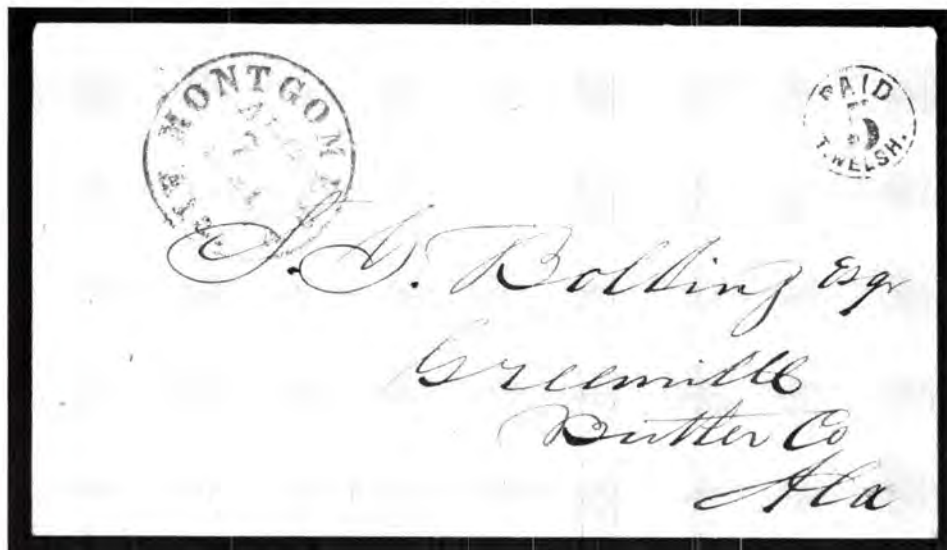 MONTGOM
PAID
5
T. WELSH.
Bolling Esqr
Greenville
Butler Co
Ala